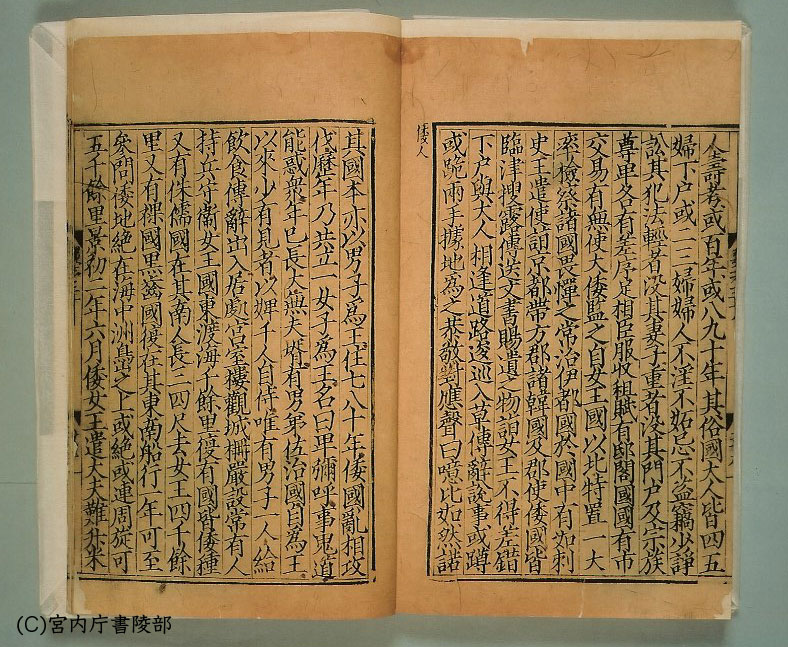 人壽考或百年或八九十年其俗國大人皆四五
婦下户或二三婦婦人不淫不妬忌不盗竊少諍
訟其犯法輕者没其妻子重者没其門户及宗族
尊卑各有差序足相臣服收租賦有邸閣國國有市
交易有無使大倭監之自女王國以北特置一大
率檢察諸國畏憚之常治伊都國於國中有如刺
史王遣使詣京都帶方郡諸韓國及郡使倭國皆
臨津搜露傳送文書賜遺之物詣女王不得差錯
下户與大人相逢道路逡巡入草傳辭說事或蹲
或跪兩手據地爲之恭敬對應聲曰噫比如然諾
倭人
其國本亦以男子爲王住七八十年倭國亂相攻
伐歷年乃共立一女子爲王名曰卑彌呼事鬼道
能惑衆年已長大無夫壻有男弟佐治國自爲王
以來少有見者以婢千人自侍唯有男子一人給
飲食傳辭出入居處宮室樓觀城柵嚴設常有人
持兵守衛女王國東渡海千餘里復有國皆倭種
又有侏儒國在其南人長三四尺去女王四千餘
里又有裸國黑齒國復在其東南船行一年可至
參問倭地絶在海中洲島之上或絶或連周旋可
五千餘里景初二年六月倭女王遣大夫難升米
(C)宮内庁書陵部